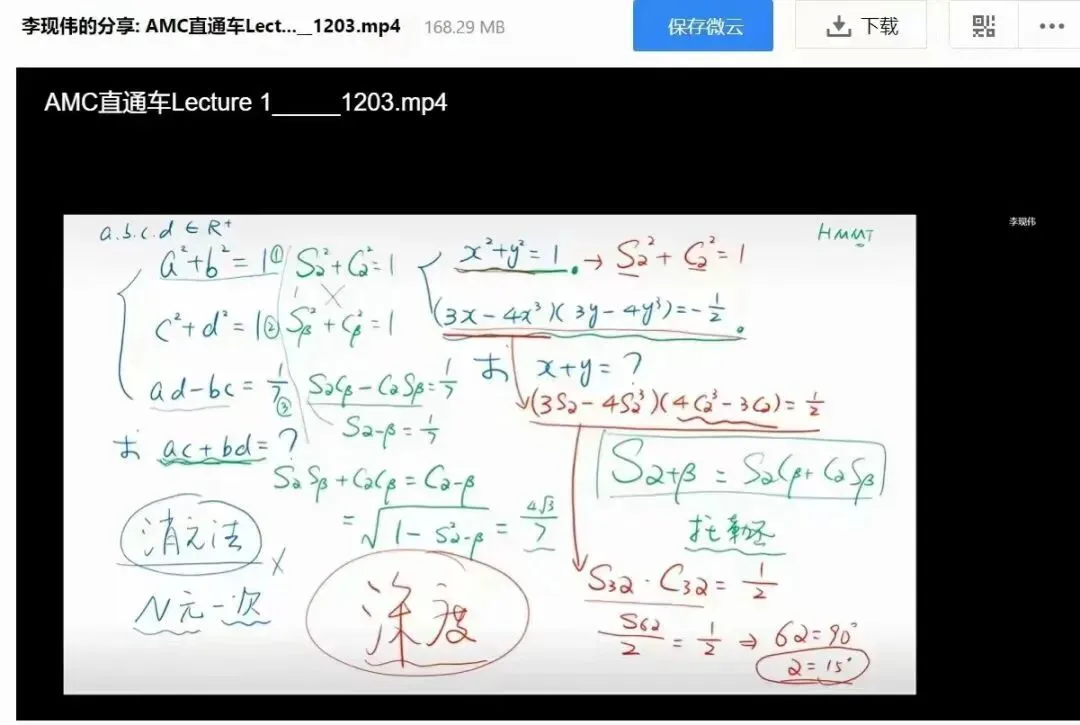 李现伟的分享: AMC直通车Lect...__1203.mp4
168.29 MB
保存微云
下载
AMC直通车Lecture 1_____1203.mp4
李现伟
a.b.c.d ∈ R⁺
a²+b²=1①
c²+d²=1②
ad-bc=1/7③
求 ac+bd=?
消元法 ×
N元一次
S²α+C²α=1
S²β+C²β=1
SαCβ-CαSβ=1/7
Sα-β=1/7
SαSβ+CαCβ=Cα-β
=√(1-S²α-β)=4√3/7
深度
HMMT
x²+y²=1. → S²α+C²α=1
(3x-4x³)(3y-4y³)=-1/2.
求 x+y=?
(3Sα-4S³α)(4C³α-3Cα)=1/2
Sα+β=SαCβ+CαSβ
托勒密
S3α·C3α=1/2
S6α/2=1/2 ⇒ 6α=90°
α=15°